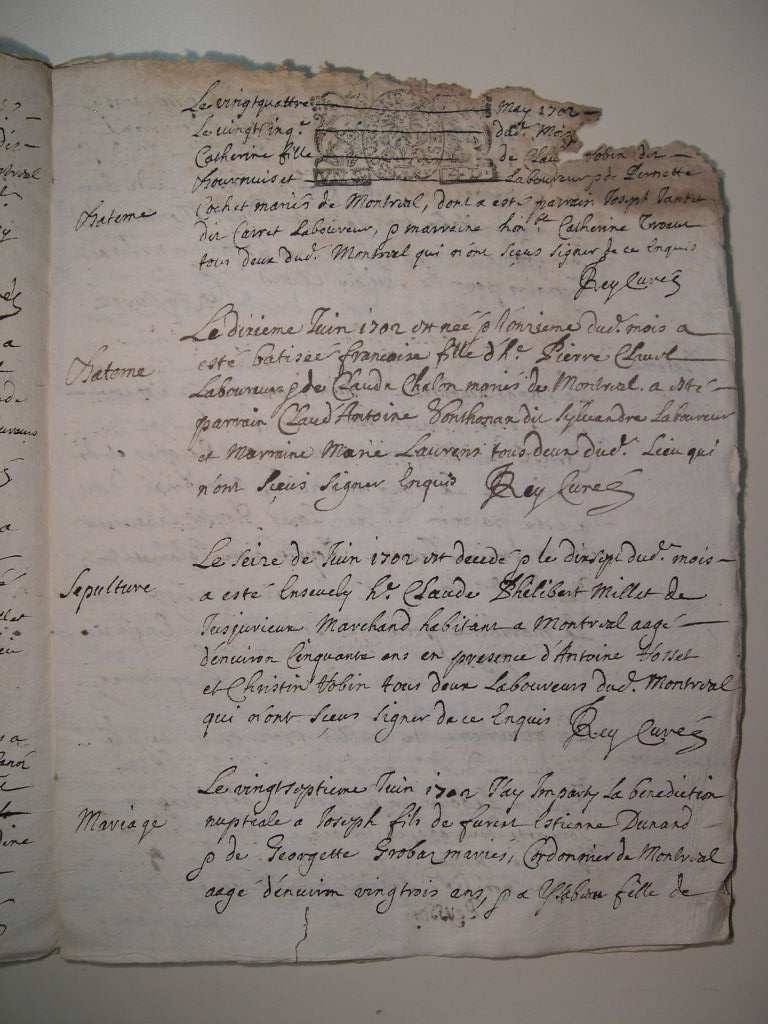 Le vingtquattre May 1702
Le vingtcinq.e dud. May
Catherine fille de Clau dit
et Laboureur & de Pernette
Cochet mariés de Montreal, dont a esté parrain Joseph
Bateme
dit Carret Laboureur, & marraine hon.ble Catherine
tous deux dud. Montreal qui n'ont sçeus signer de ce Enquis
Rey Curé
Le dixieme Juin 1702 est neé & l'onzieme dud. mois a
Bateme
esté batiseé francoise fille d'h.e Pierre
Laboureur & de Claude Chalon mariés de Montreal. a esté
parrain Claud'Antoine dit Sylvandre Laboureur
et Marraine Marie Laurens tous deux dud. Lieu qui
n'ont sçeus signer Enquis Rey Curé
Le seize de Juin 1702 est decedé & le dixsept dud. mois
Sepulture
a esté Ensevely h.e Claude Phelibert Millet de
Jusjurieux Marchand habitant a Montreal aagé
d'environ Cinquante ans en presence d'Antoine
et Christin tous deux Laboureurs dud. Montreal
qui n'ont sçeus signer de ce Enquis Rey Curé
Le vingtseptieme Juin 1702 J'ay Imparty la benediction
Mariage
nuptiale a Joseph fils de Estienne Dunand
& de Georgette Grobas mariés, Cordonnier de Montreal
aagé d'environ vingtrois ans, & a Ysabeau fille de